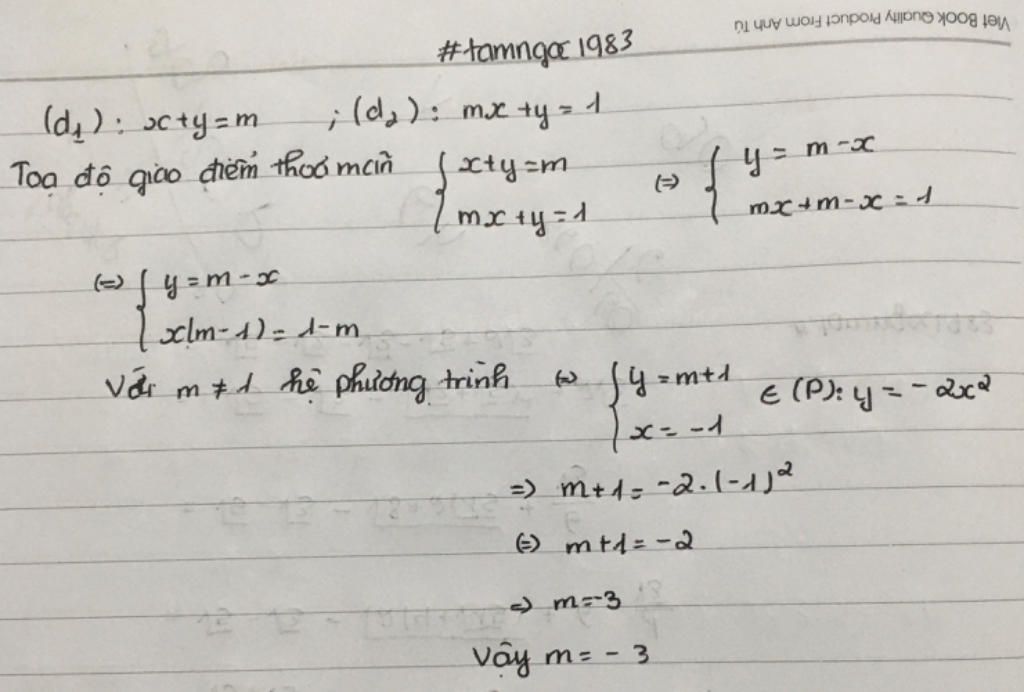 Viet Book Quality Product From Anh Tú
#tamngoc1983
(d₁): x+y=m ; (d₂): mx+y=1
Toạ độ giao điểm thoả mãn { x+y=m (=) { y=m-x
mx+y=1 mx+m-x=1
(=) { y=m-x
x(m-1)=1-m
Với m≠1 hệ phương trình (=) { y=m+1 ∈ (P): y=-2x²
x=-1
=) m+1=-2.(-1)²
(=) m+1=-2
=) m=-3
Vậy m=-3